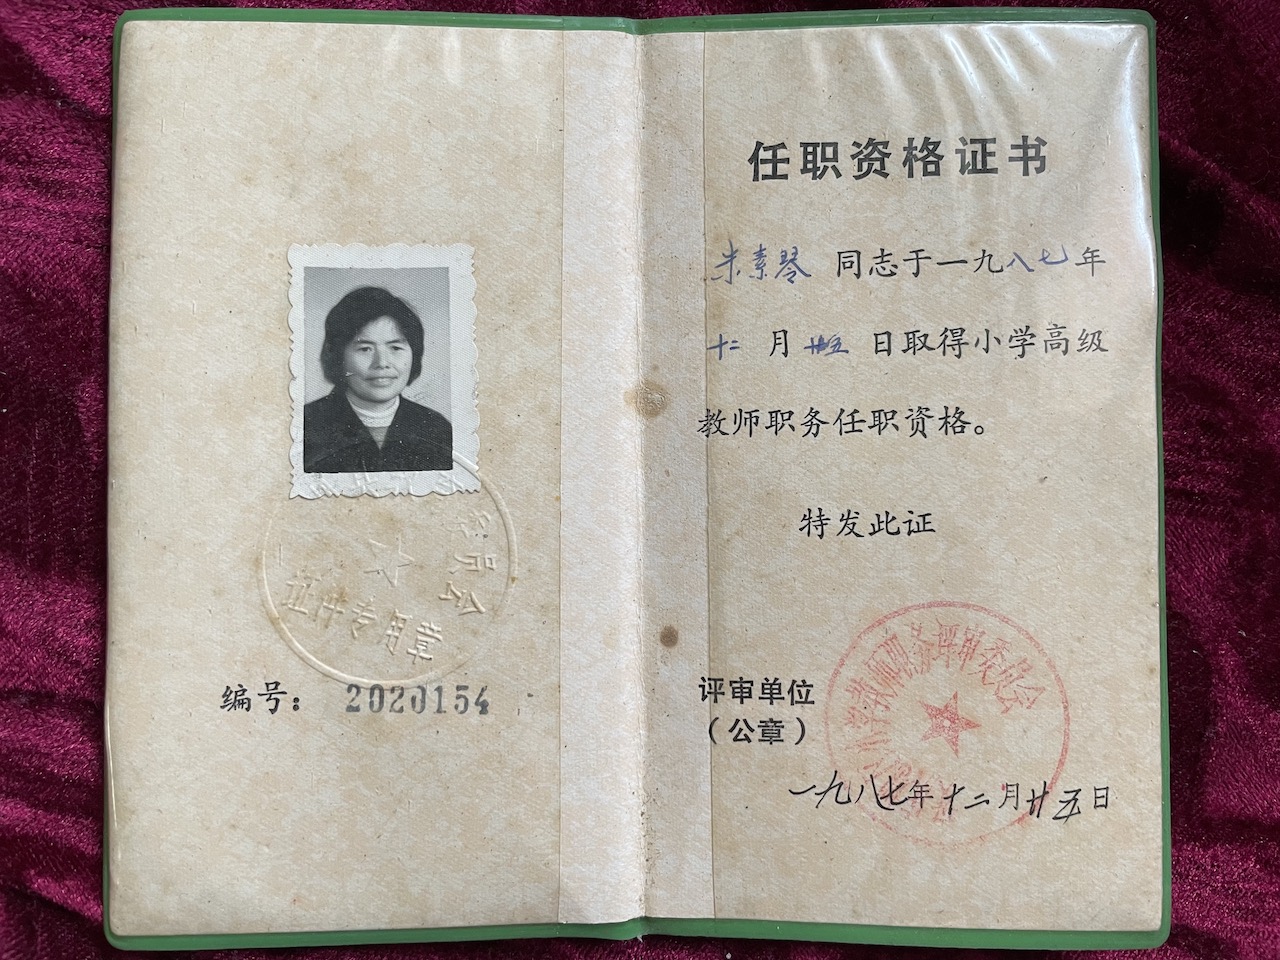 委员会
证件专用章
编号： 2020154
任职资格证书
朱素琴 同志于一九八七年
十二 月 廿五 日取得小学高级
教师职务任职资格。
特发此证
评审单位
（公章）
小学教师职务评审委员会
一九八七年十二月廿五日